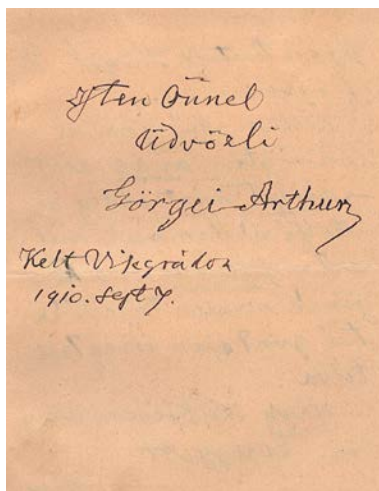 Isten Önnel
Üdvözli
Görgei Arthur
Kelt Visegrádon
1910. Sept 7.